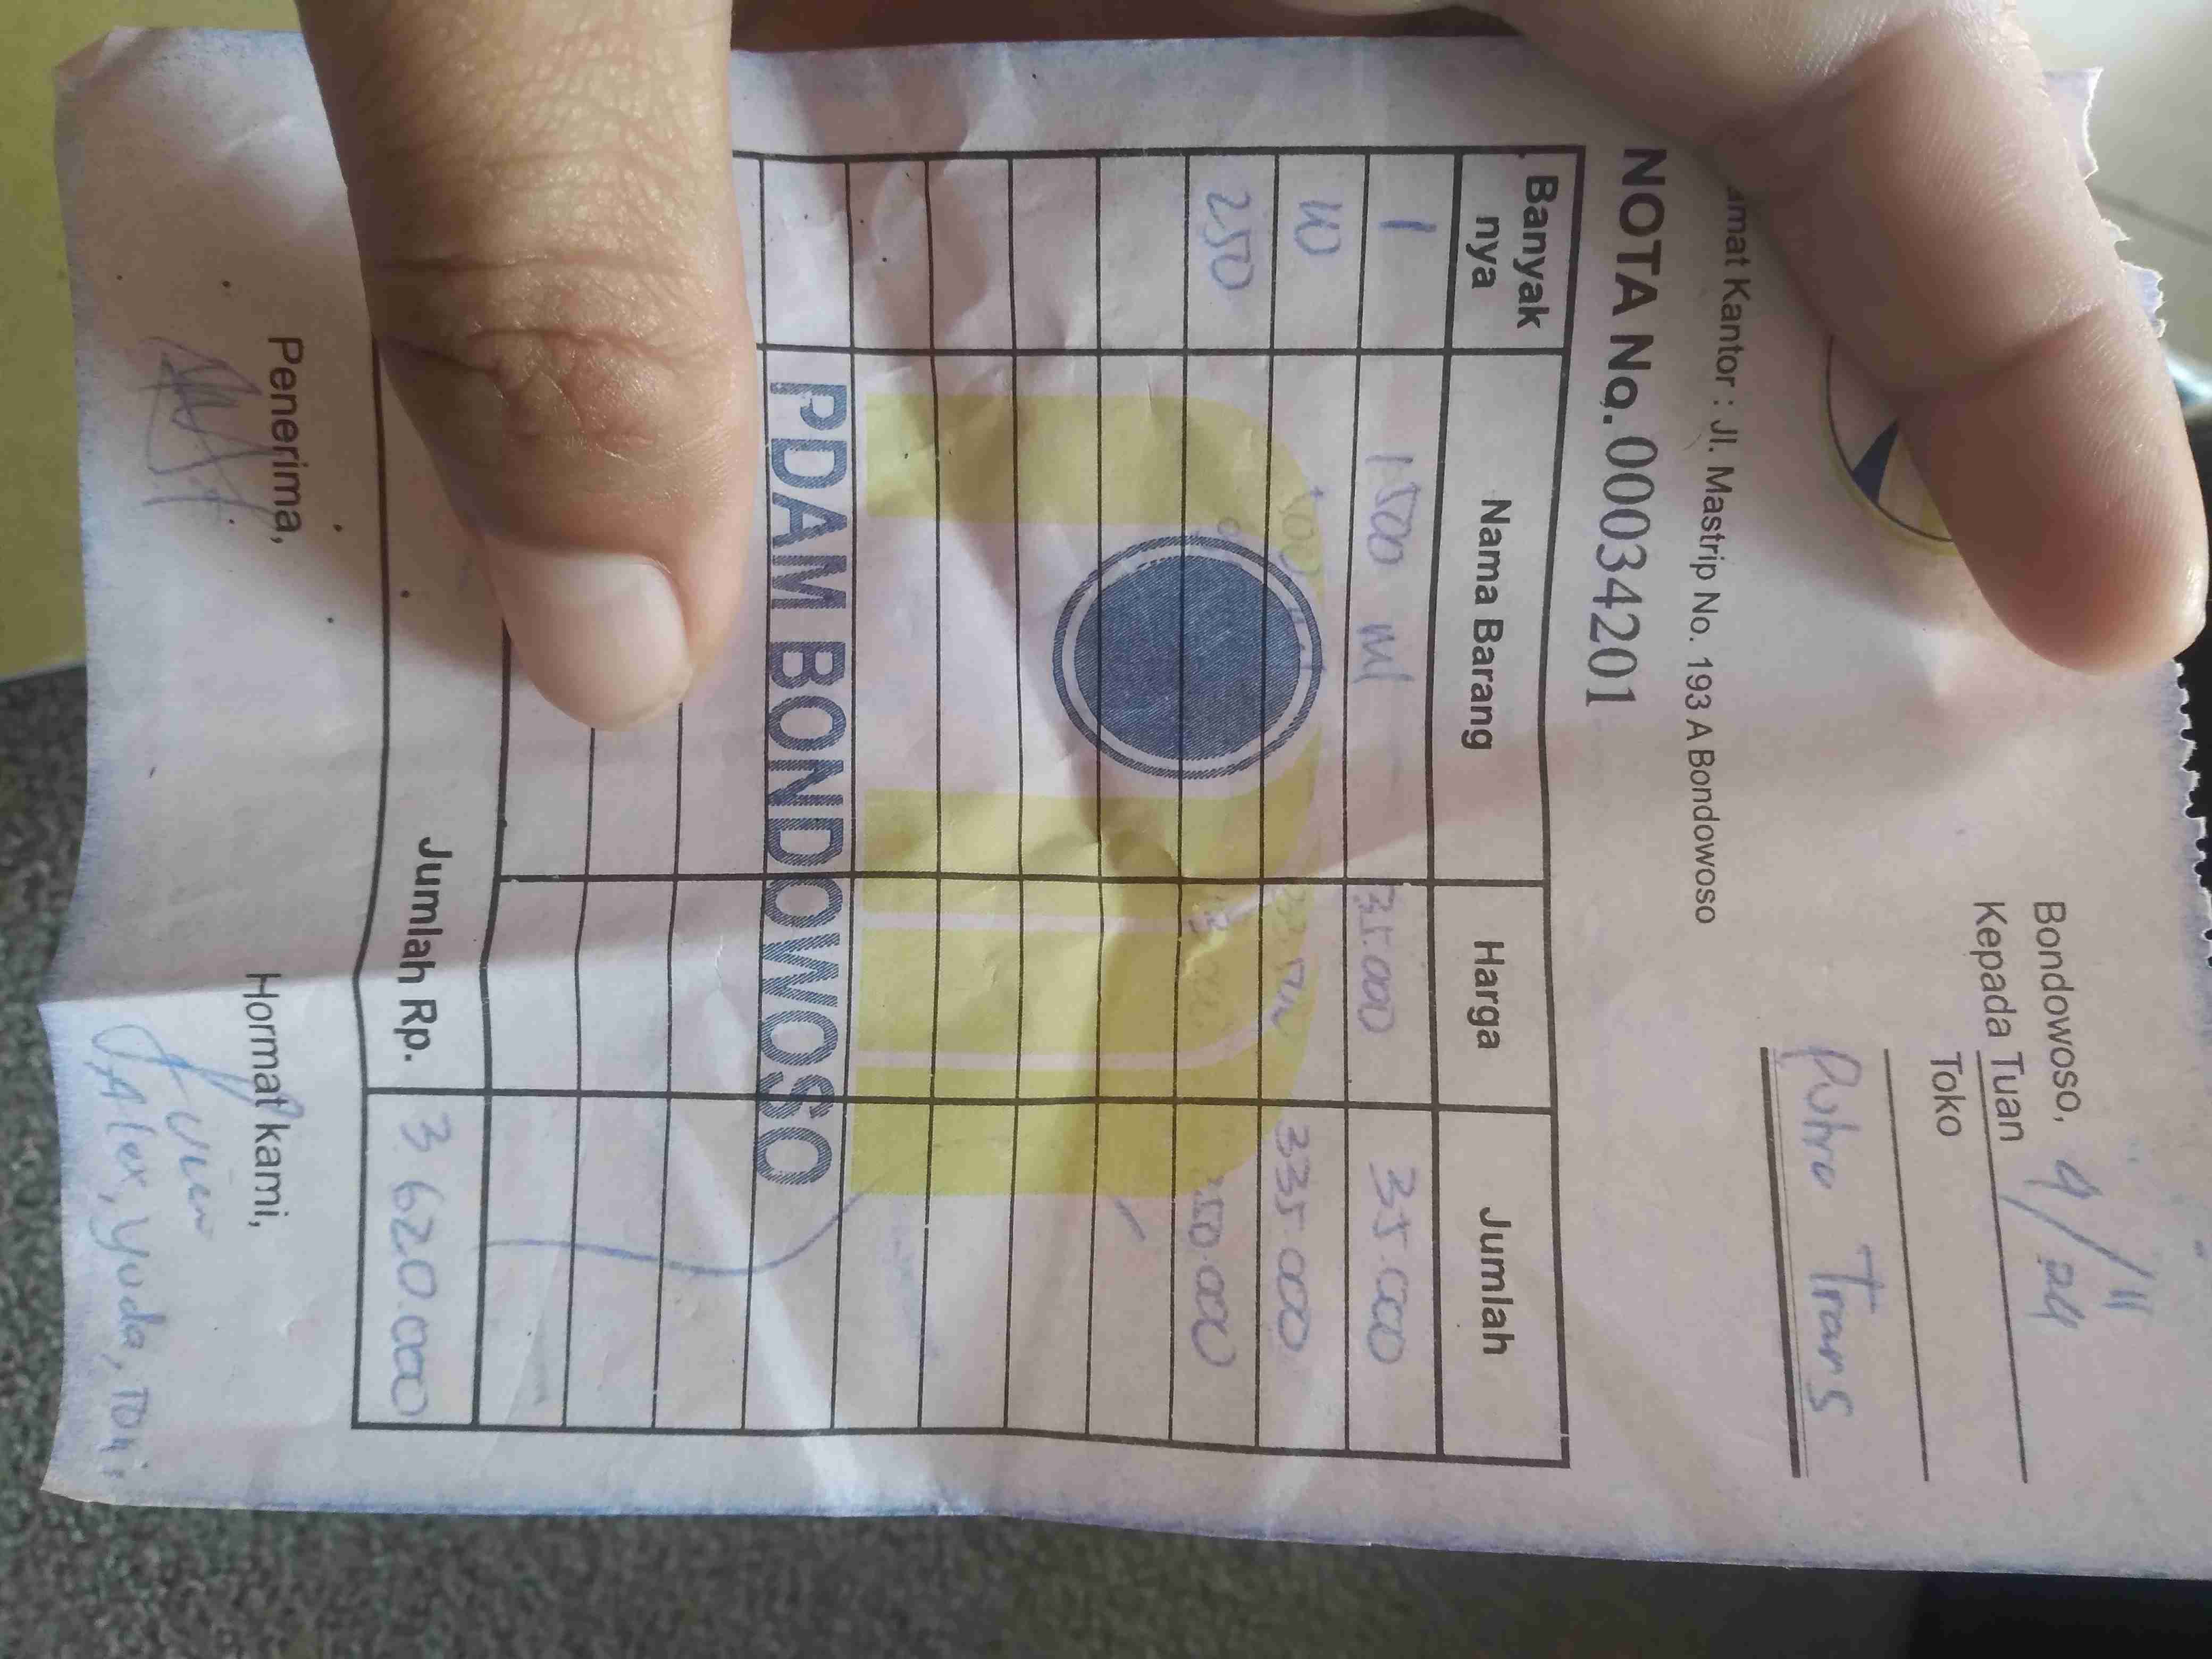 Bondowoso, 4/11 24
Kepada Tuan
Toko
Putra Trans
Kantor : Jl. Mastrip No. 193 A Bondowoso
NOTA No. 00034201
Banyak nya Nama Barang Harga Jumlah
1 1500 ml 35.000 35.000
10 335.000
250
PDAM BONDOWOSO
Jumlah Rp. 3.620.000
Penerima, Hormat kami,
Alex, Yuda, Toni